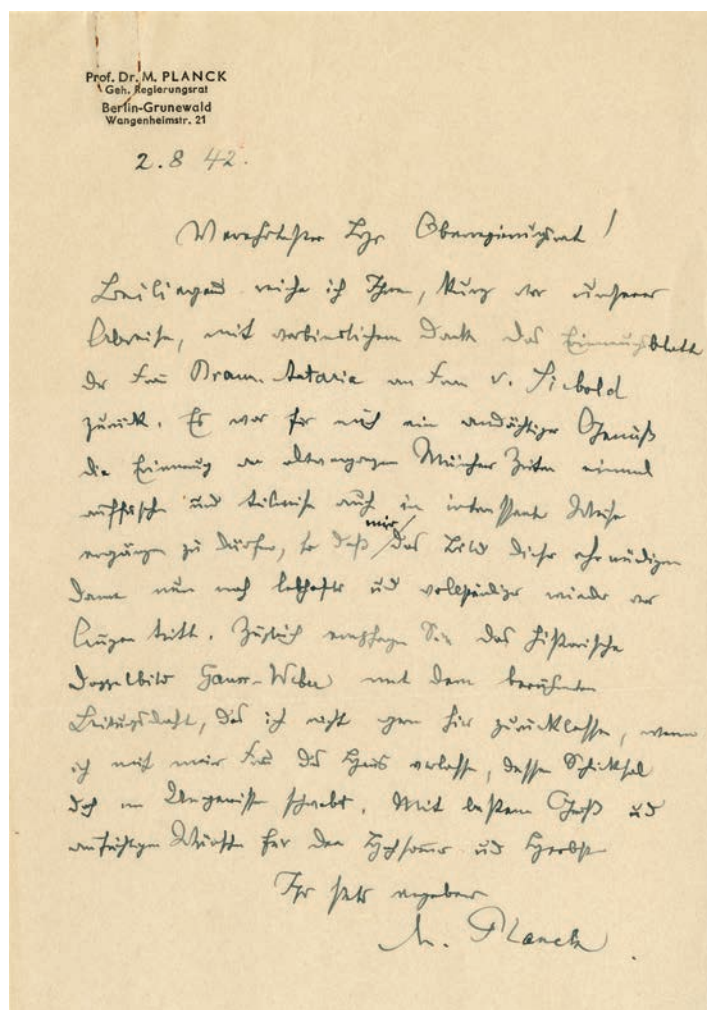 Prof. Dr. M. PLANCK
Geh. Regierungsrat
Berlin-Grunewald
Wangenheimstr. 21
2.8 42.
Verehrtester Herr Oberregierungsrat!
Beiliegend reiche ich Ihnen, kurz vor unserer
Abreise, mit verbindlichem Dank das Erinnerungsblatt
der Frau an Frau v. Siebold
zurück. Es war für mich ein andächtiger Genuß
die Erinnerung an altvergangene Münchner Zeiten einmal
auffrischen und teilweise auch in interessanter Weise
ergänzen zu dürfen, so daß mir das Bild dieser ehrwürdigen
Dame nun noch lebhafter und vollständiger wieder vor
Augen tritt. Zugleich empfangen Sie das historische
Doppelbild Gauss-Weber mit dem berühmten
Leitungsdraht, das ich nicht gern hier zurücklasse, wenn
ich mit meiner Frau das Haus verlasse, dessen Schicksal
doch im Ungewissen schwebt. Mit bestem Gruß und
aufrichtigen Wünschen für den Hochsommer und Herbst
Ihr stets ergebener
M. Planck.